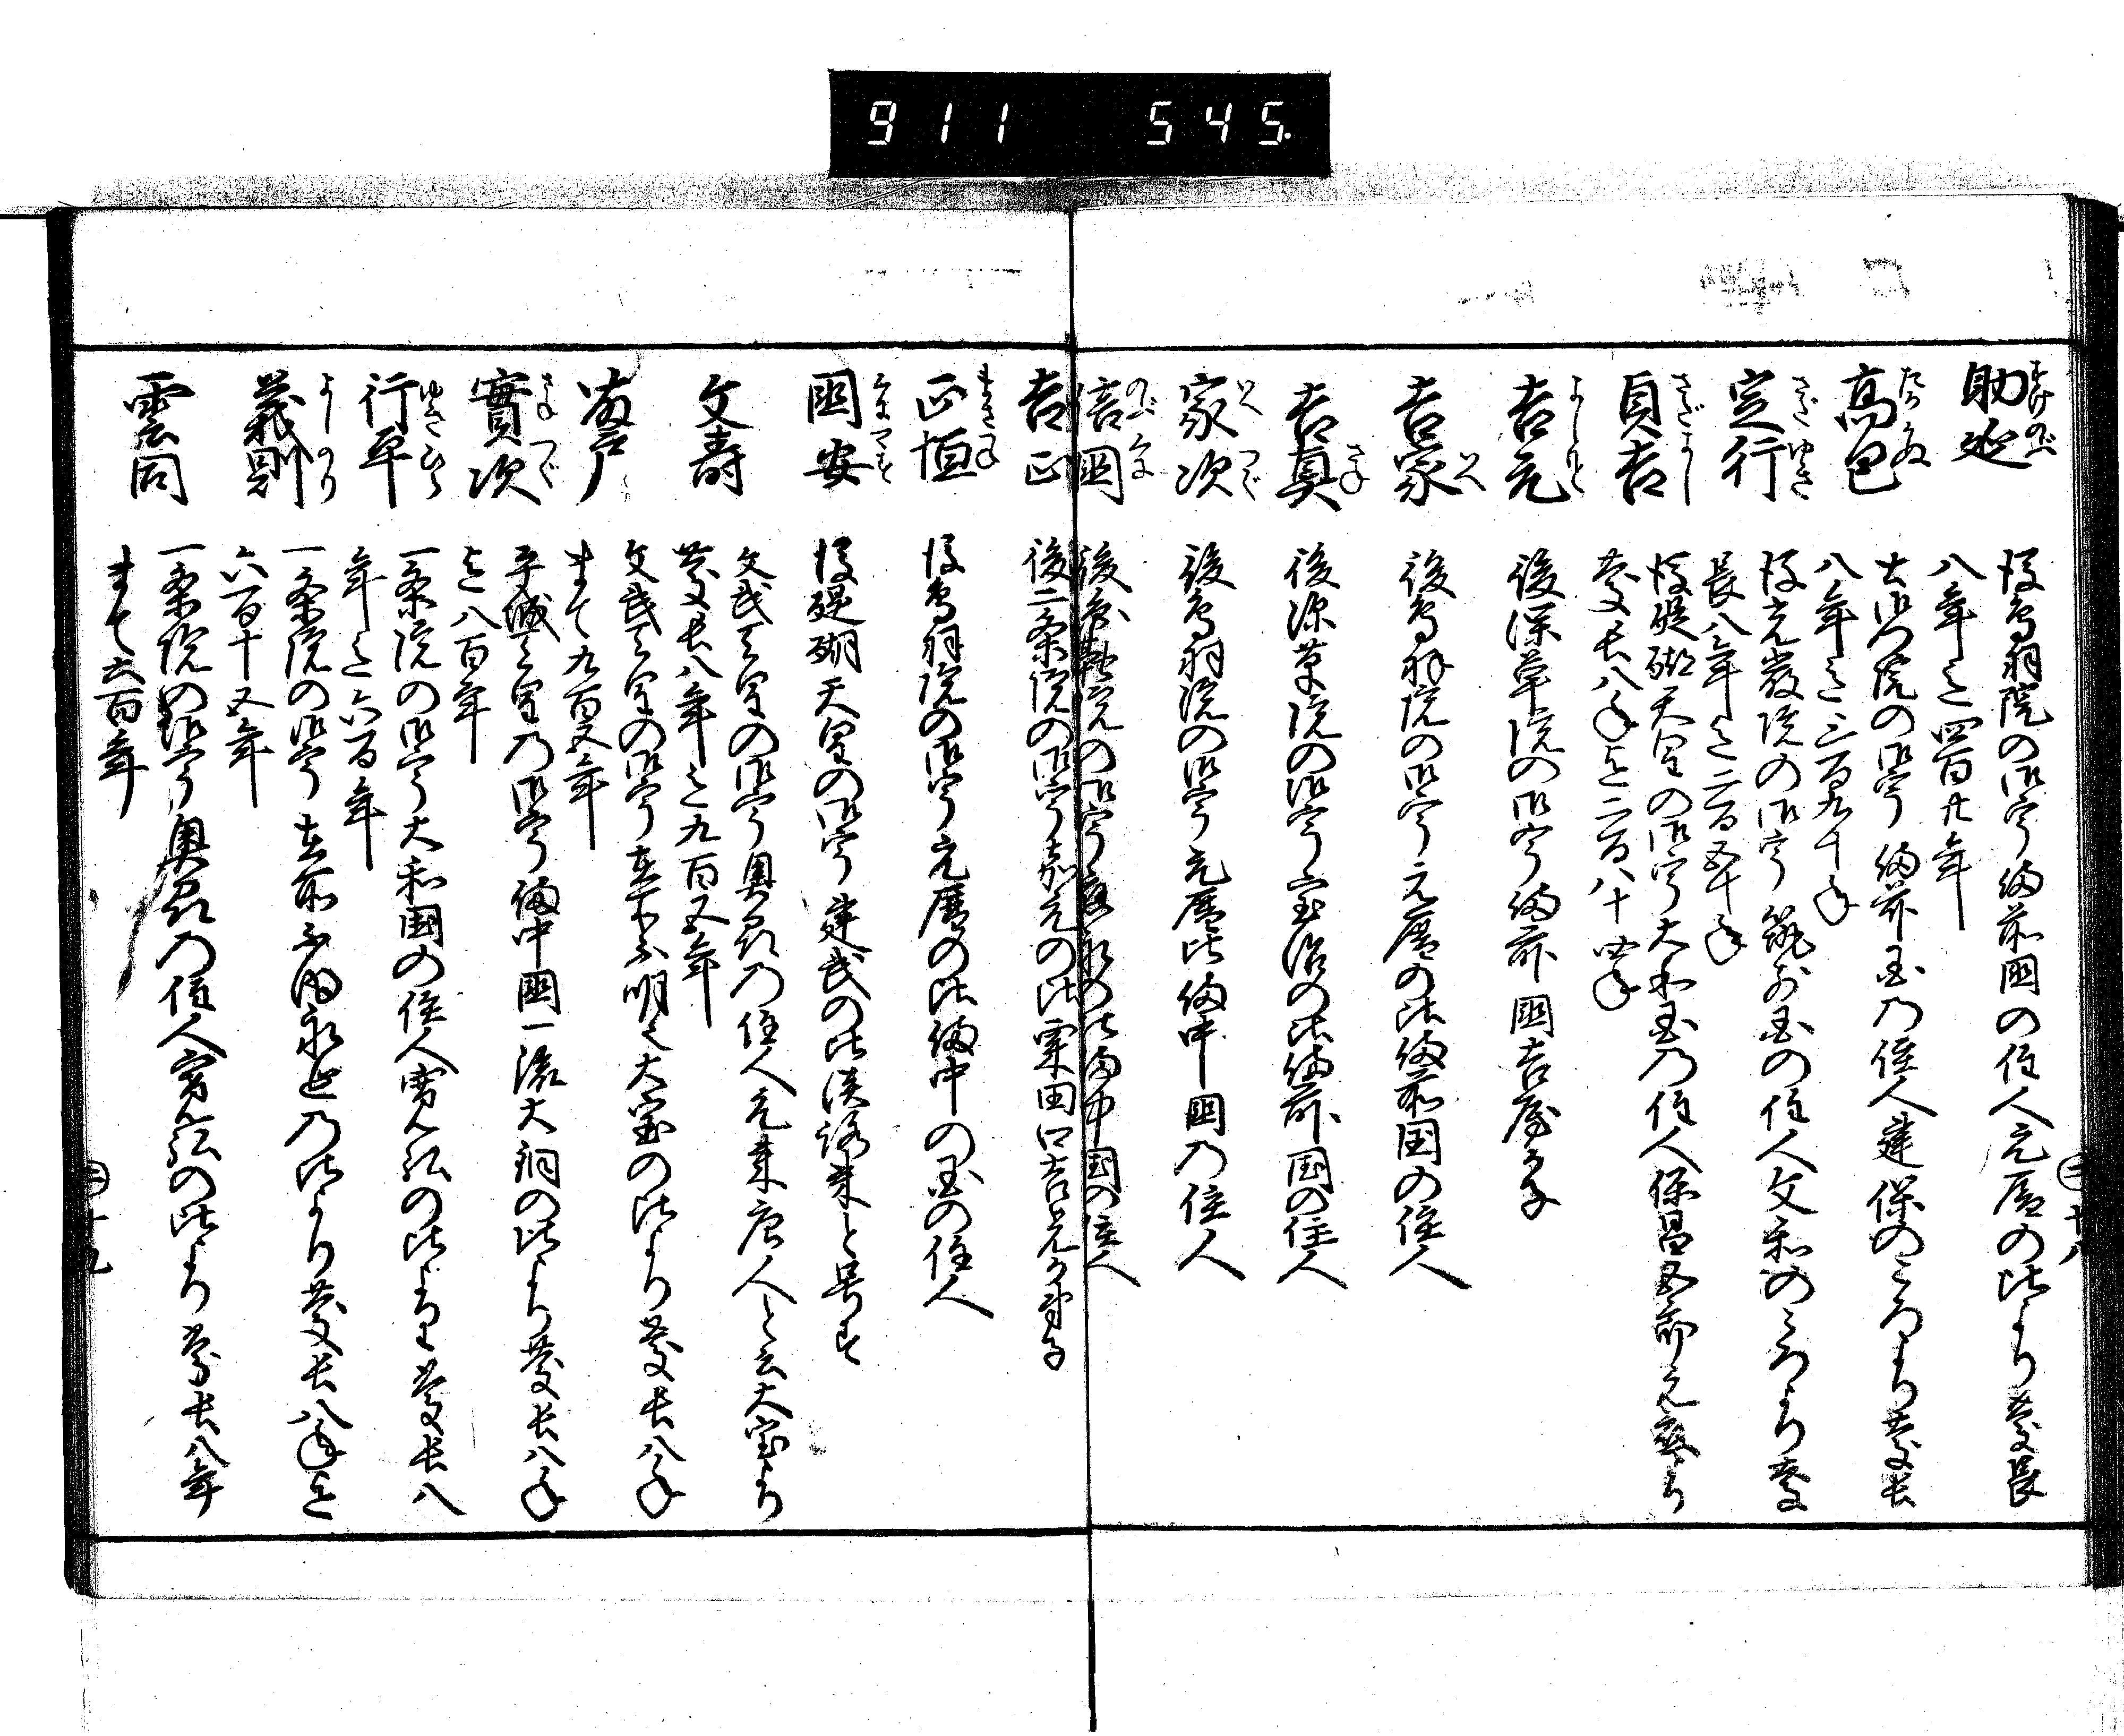 911 545.
助延 すけのぶ
後鳥羽院の御宇備前国の住人元暦の比より慶長
八年迄四百廿年
高包 たかかね
土御門院の御宇備前国乃住人建保のころより慶長
八年迄三百九十年
定行 さだゆき
後光厳院の御宇筑前国の住人文和のころより慶
長八年迄二百五十年
貞吉 さだよし
後醍醐天皇の御宇大和国乃住人保昌五郎元応より
慶長八年迄二百八十四年
吉元 よしもと
後深草院の御宇備前国吉房子
吉家 いへ
後鳥羽院の御宇元暦の比備前国の住人
吉真 さね
後深草院の御宇宝治の比備前国の住人
家次 いへつぐ
後鳥羽院の御宇元暦比備中国乃住人
信国 のぶくに
後亀山院の御宇の比備中国の住人
吉正
後二条院の御宇嘉元の比粟田口吉光が弟子
正恒 まさつね
後鳥羽院の御宇元暦の比備中の国の住人
国安 くにやす
後醍醐天皇の御宇建武の比淡路来と号す
文寿
文武天皇の御宇奥州乃住人元来唐人と云大宝より
慶長八年迄九百五年
文武天皇の御宇在所不明之大宝の比より慶長八年
まて九百五年
實次 さねつぐ
平城天皇乃御宇備中国一流大同の比より慶長八年
迄八百年
行平 ゆきひら
一条院の御宇大和国の住人寛弘の比より慶長八
年迄六百年
義則 よしのり
一条院の御宇在所不知永延乃比より慶長八年迄
六百十五年
雲同
一条院の御宇奥州乃住人寛弘の比より慶長八年
まて六百年
二 十八
二 十九